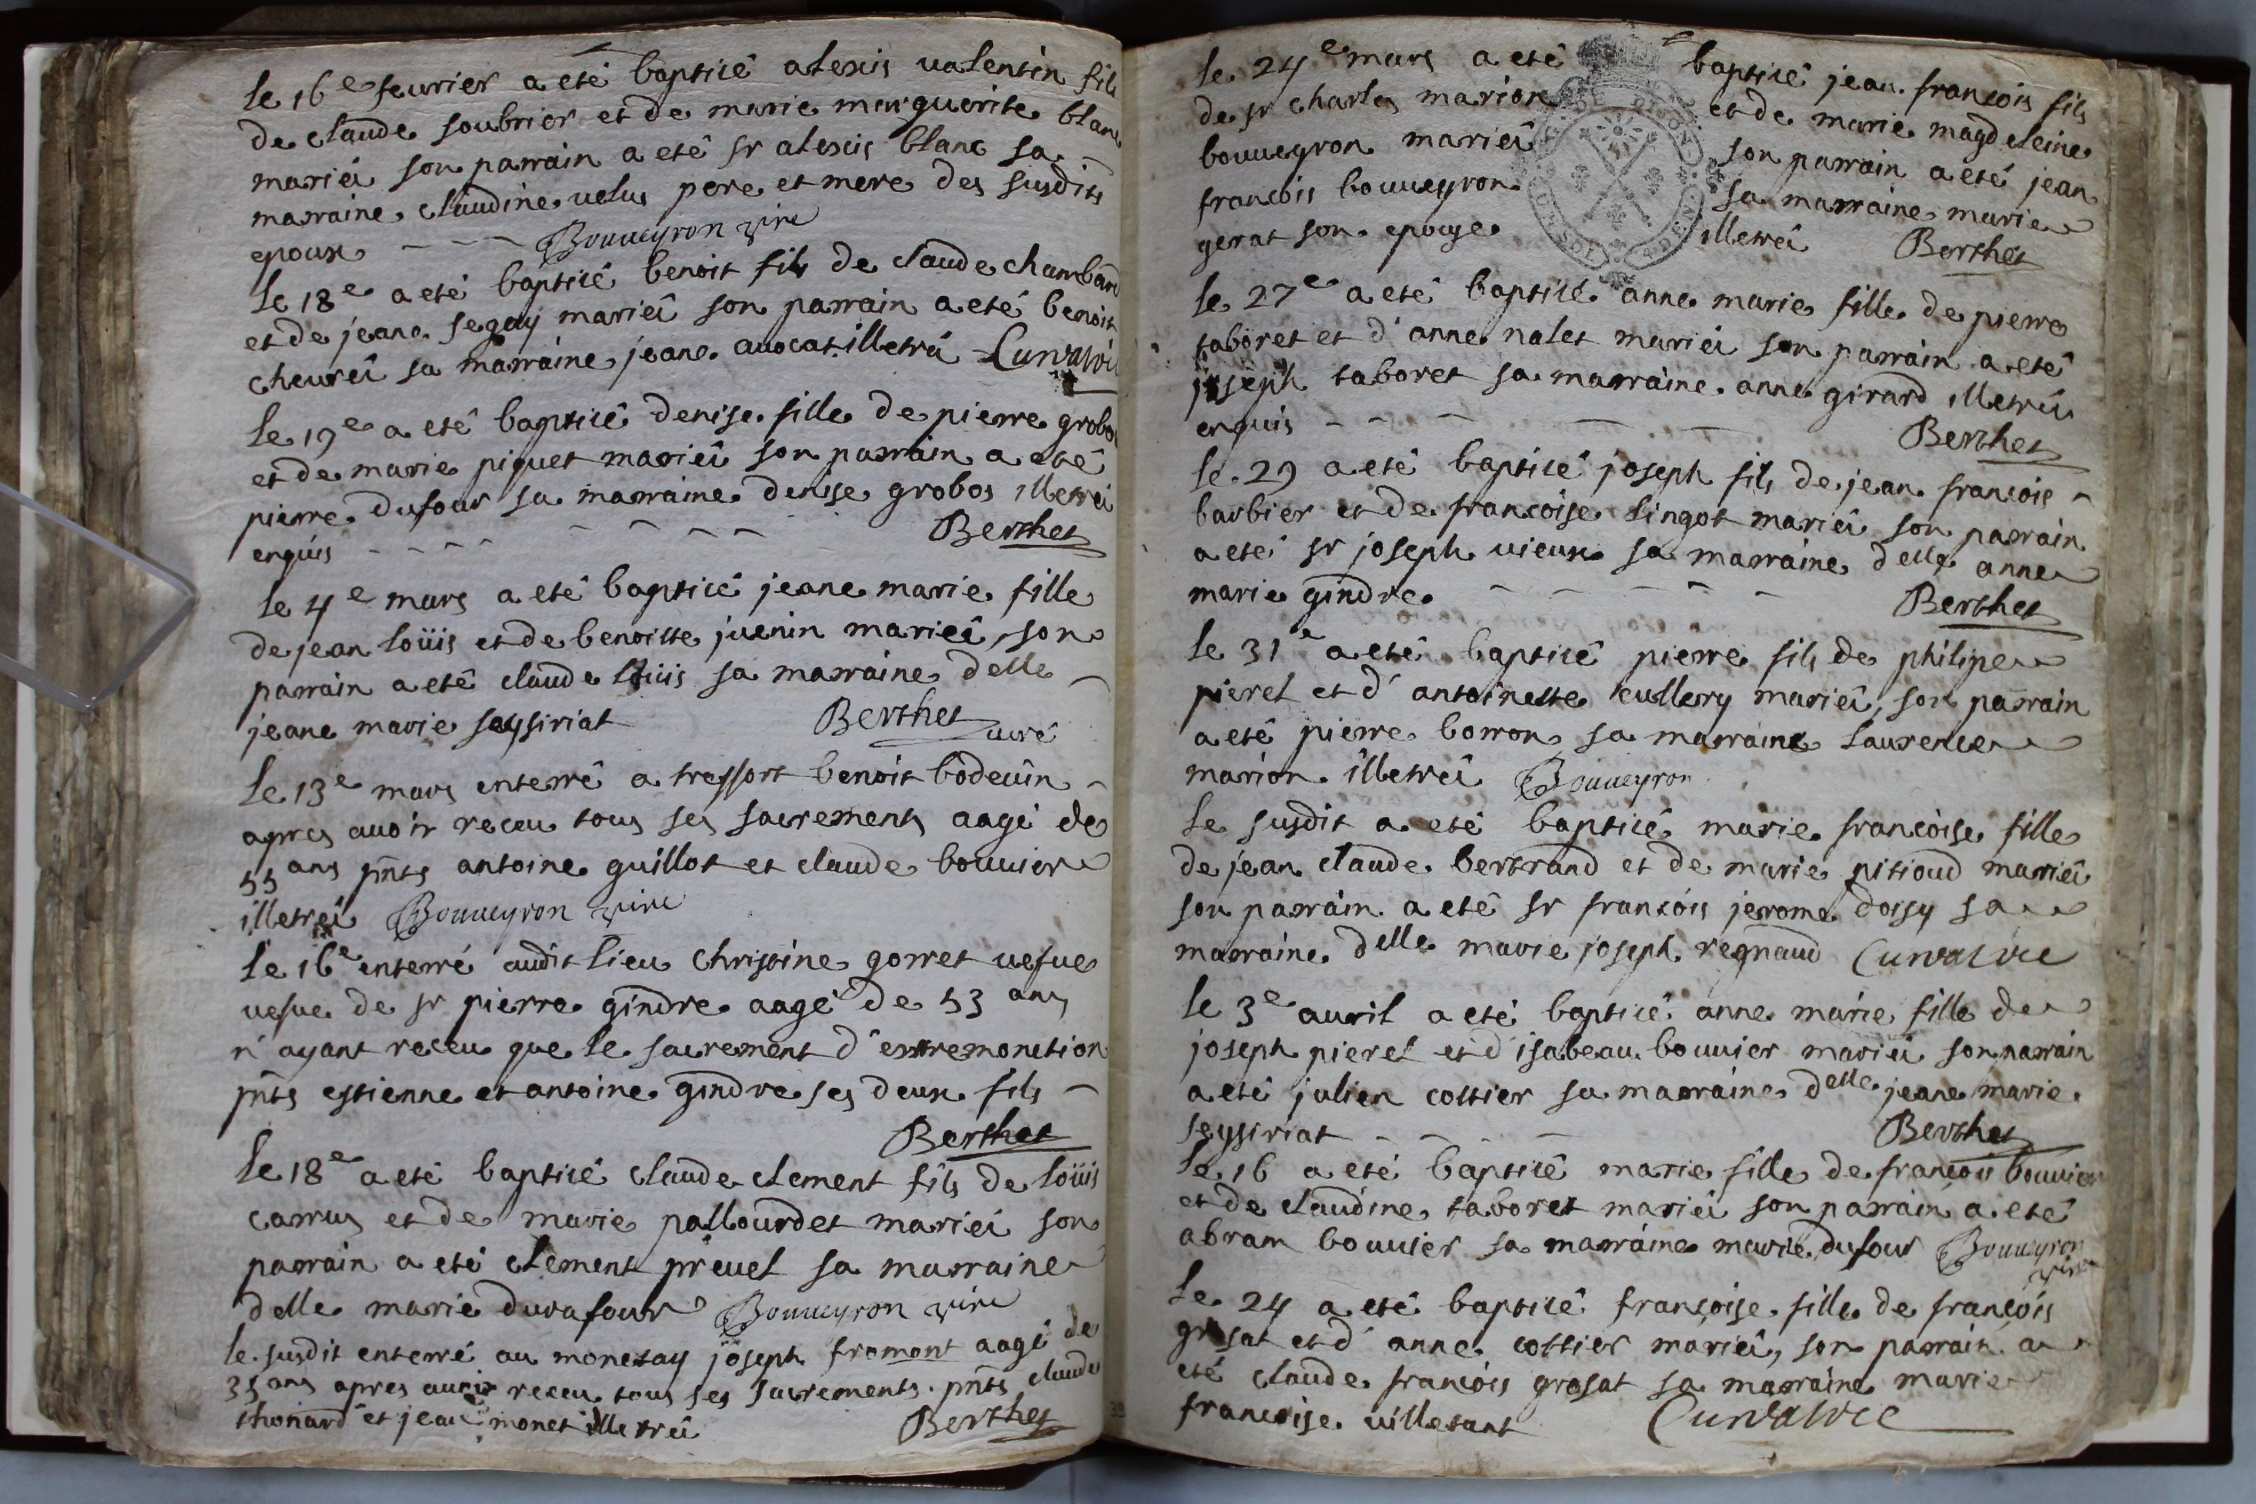 le 16e feurier a eté bapticé alexis ualentin fils
de claude soubrier et de marie marguerite blanc
mariéi son parrain a eté sr alexis blanc sa
marraine claudine uelus pere et mere des susdits
epoux - - - Bouueyron vire
le 18e a eté bapticé benoit fils de claude chambard
et de jeane seguy mariéi son parrain a eté benoit
cheuréi sa marraine jeane auocat illetréi
le 19e a eté bapticé denise fille de pierre grobos
et de marie piquet mariéi son parrain a eté
pierre dufour sa marraine denise grobos illetréi
enquis - - - - - - - - Berthet
le 4e mars a eté bapticé jeane marie fille
de jean loüis et de benoitte juenin mariéi, son
parrain a eté claude loüis sa marraine delle
jeane marie seysiriat Berthet curé
le 13e mars enterré a tressort benoit bôdeuin
apres auoir receu tous ses sacrements aagé de
55 ans pnts antoine guillot et claude bouuier
illetréi Bouueyron vire
le 16e enterré audit lieu christine gorret uefue
uefue de sr pierre gindre aagé de 53 ans
n'ayant receu que le sacrement d'extremonction
pnts estienne et antoine gindre ses deux fils
Berthet
le 18e a eté bapticé claude clement fils de loüis
carrus et de marie pallourdet mariéi son
parrain a eté clement preuel sa marraine
delle marie durafour Bouueyron vire
le susdit enterré au monetay joseph fromont aagé de
35 ans apres auoir receu tous ses sacrements pnts claude
thonard et jean monet illetréi Berthet
le 24e mars a eté bapticé jean francois fils
de sr charles marion et de marie magdeleine
bouueyron mariéi son parrain a eté jean
francois bouueyron sa marraine marie
gerat son epouse illetréi Berthet
le 27e a eté bapticé anne marie fille de pierre
taboret et d'anne nalet mariéi son parrain a eté
joseph taboret sa marraine anne girard illetréi
enquis - - - - - Berthet
le 29 a eté bapticé joseph fils de jean francois
barbier et de francoise lingot mariéi son parrain
a eté sr joseph uieux sa marraine delle anne
marie gindre - - - - - Berthet
le 31e a eté bapticé pierre fils de philipe
pierel et d'antoinette cullery mariéi, son parrain
a eté pierre borron sa marraine laurence
marion illetréi Bouueyron
le susdit a eté bapticé marie francoise fille
de jean claude bertrand et de marie pitioud mariéi
son parrain a eté sr francois jerome doisy sa
marraine delle marie joseph regnaud
le 3e auril a eté bapticé anne marie fille de
joseph pierel et d'isabeau bouuier mariéi son parrain
a eté julien cottier sa marraine delle jeane marie
seysiriat - - - - Berthet
le 16 a eté bapticé marie fille de francois bouuier
et de claudine taboret mariéi son parrain a eté
abram bouuier sa marraine marie dufour Bouueyron
vire
le 24 a eté bapticé francoise fille de francois
grosat et d'anne cottier mariéi, son parrain a
eté claude francois grosat sa marraine marie
francoise uilletant